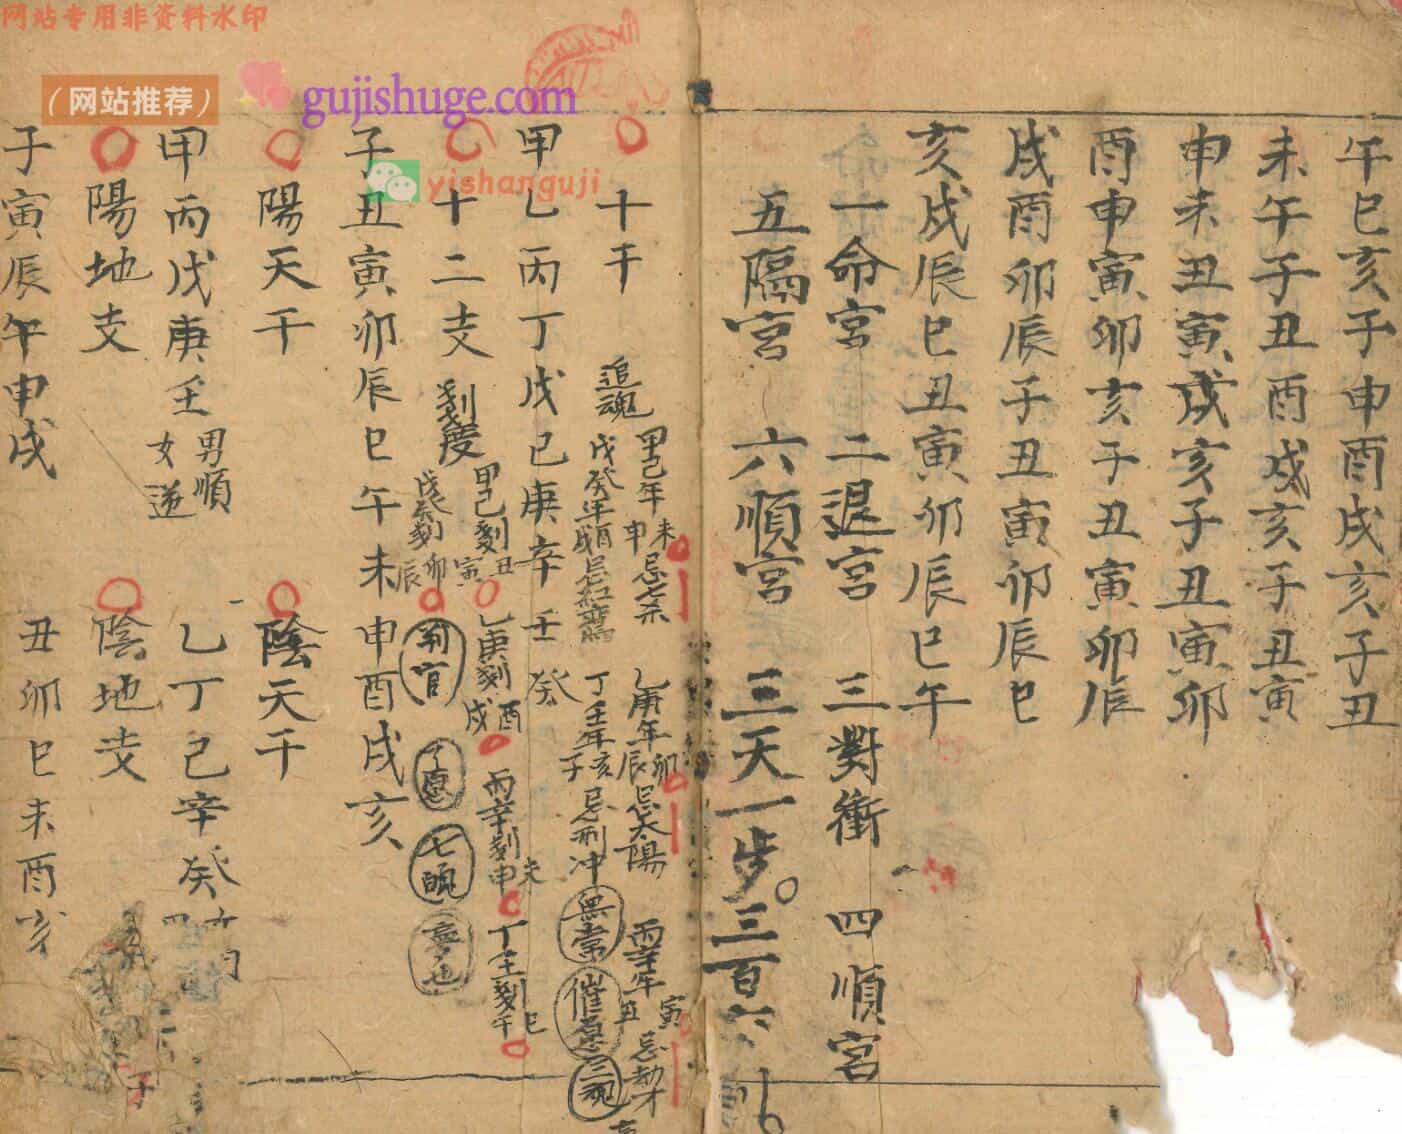 网站专用非资料水印
（网站推荐）
gujishuge.com
yishanguji
午巳亥子申酉戌亥子丑
未午子丑酉戌亥子丑寅
申未丑寅戌亥子丑寅卯
酉申寅卯亥子丑寅卯辰
戌酉卯辰子丑寅卯辰巳
亥戌辰巳丑寅卯辰巳午
一命宮 二退宮 三對衝 四順宮
五隔宮 六順宮 三天一步 三百六
十干
追魂
甲己年未申忌七杀
乙庚年卯辰忌太陽
丙辛年寅丑忌劫才
戊癸年酉戌忌紅鸞
丁壬年亥子忌刑冲
無常
催息
三魂
甲乙丙丁戊己庚辛壬癸
十二支
刻度
甲己刻丑寅
乙庚刻酉戌
丙辛刻未申
丁壬刻巳午
戊癸刻卯辰
判官
七魄
子丑寅卯辰巳午未申酉戌亥
陽天干
陰天干
甲丙戊庚壬
男順
女逆
乙丁己辛癸
陽地支
陰地支
子寅辰午申戌
丑卯巳未酉亥